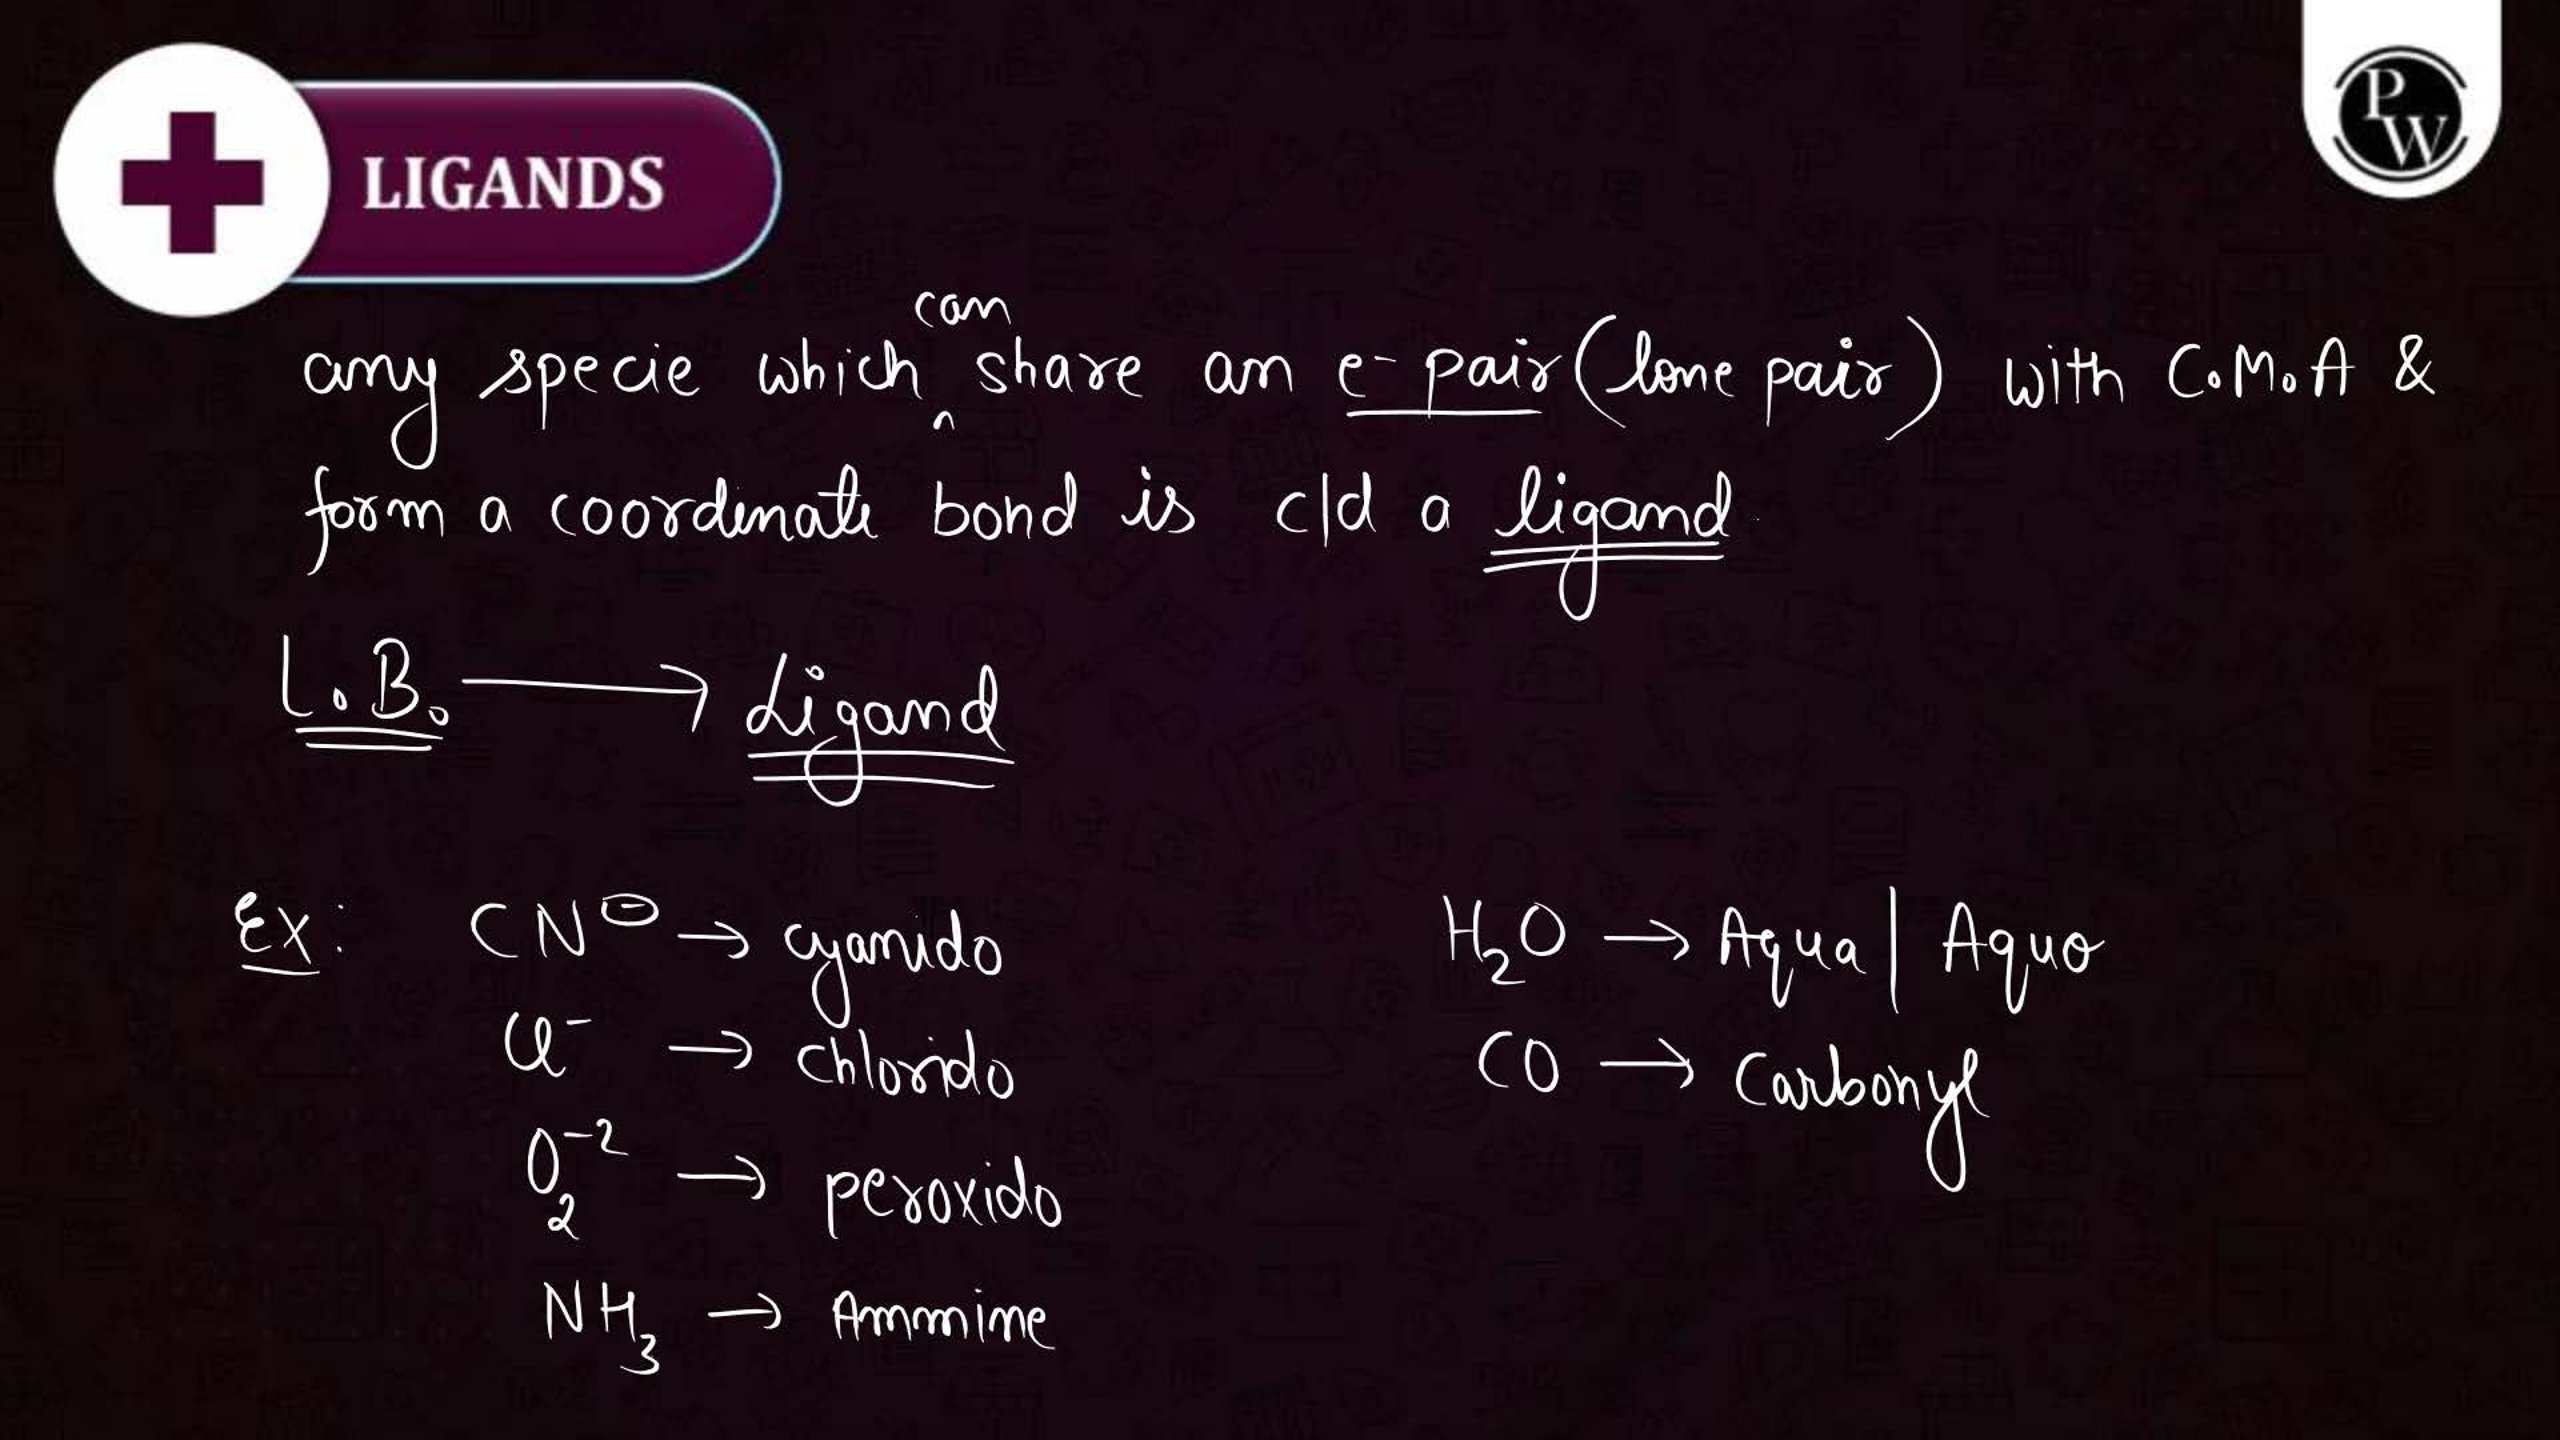 LIGANDS
PW
any specie which can share an e- pair (lone pair) with C.M.A &
form a coordinate bond is c/d a ligand
L.B. → Ligand
Ex: CN⊖ → cyanido
Cl⁻ → chlorido
O₂⁻² → peroxido
NH₃ → Ammine
H₂O → Aqua | Aquo
CO → Carbonyl